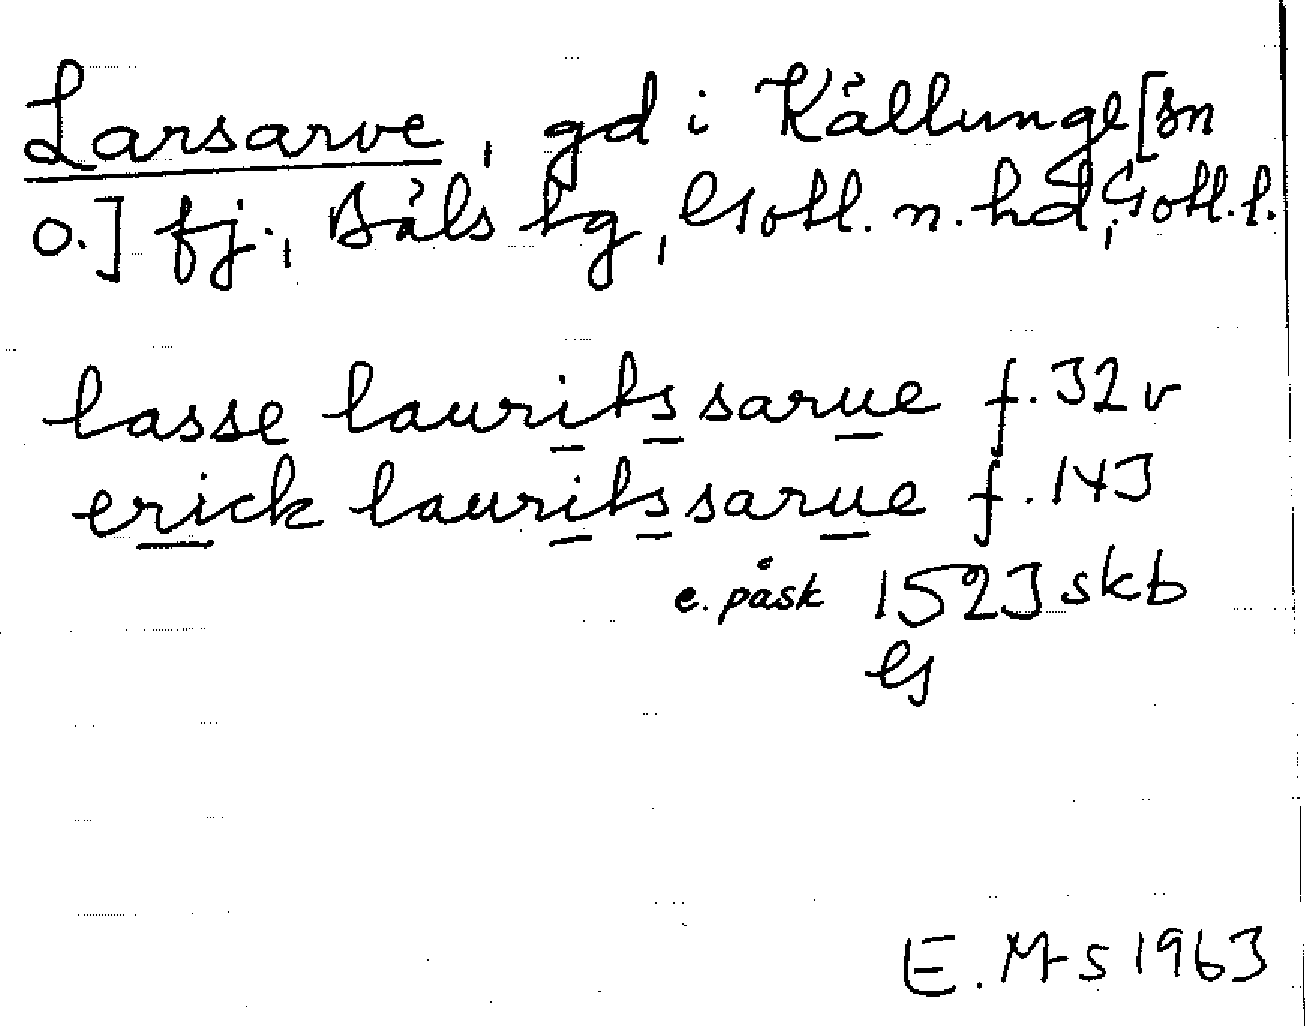 Larsarve, gd i Källunge [sn
o.] fj., Bäls tg, Gotl. n. hd, Gotl. l.
lasse lauritssarue f. 32 v
erick lauritssarue f. 143
e. påsk 1523 skb
G
E. M-s 1963